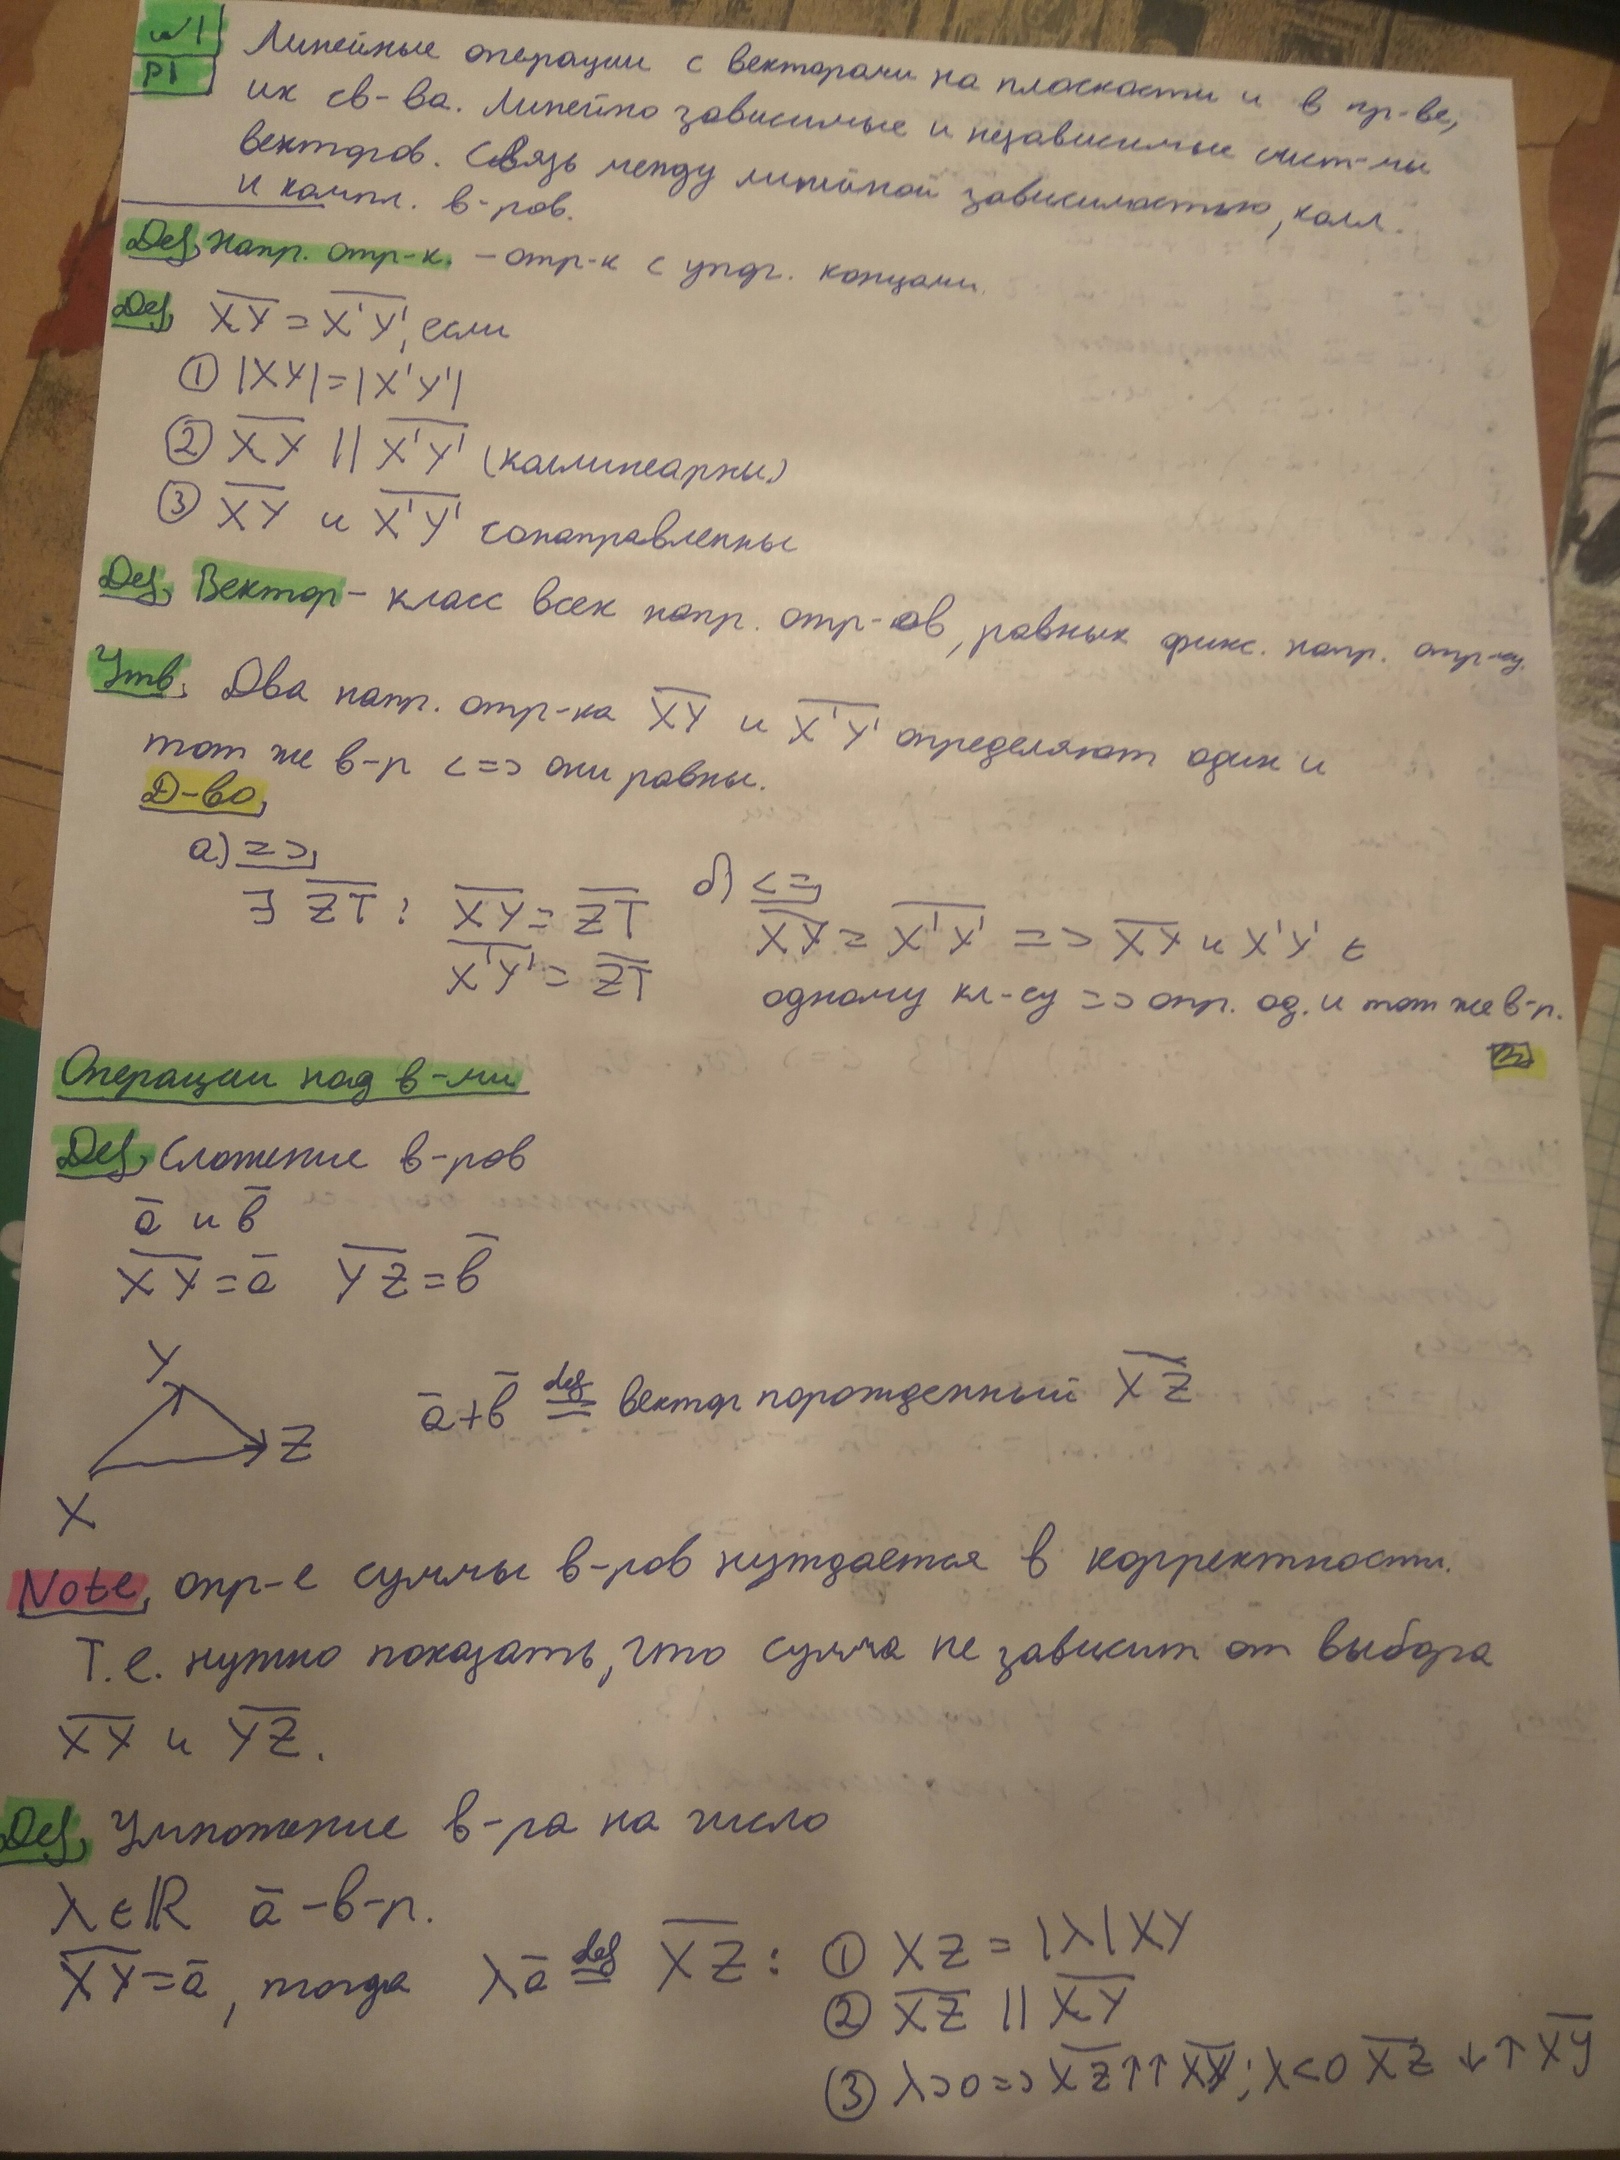 №1
P1
Линейные операции с векторами на плоскости и в пр-ве,
их св-ва. Линейно зависимые и независимые сист-мы
векторов. Связь между линейной зависимостью, колл.
и компл. в-ров.
Def, Напр. отр-к. – отр-к с упор. концами.
Def, X̅Y̅ = X̅'̅Y̅'̅, если
① |XY| = |X'Y'|
② X̅Y̅ || X̅'̅Y̅'̅ (коллинеарны)
③ X̅Y̅ и X̅'̅Y̅'̅ сонаправленны
Def, Вектор – класс всех напр. отр-ов, равных фикс. напр. отр-ку.
Утв, Два напр. отр-ка X̅Y̅ и X̅'̅Y̅'̅ определяют один и
тот же в-р <=> они равны.
Д-во,
а) =>,
∃ Z̅T̅ : X̅Y̅ = Z̅T̅
X̅'̅Y̅'̅ = Z̅T̅
б) <=,
X̅Y̅ = X̅'̅Y̅'̅ => X̅Y̅ и X'Y' ∈
одному кл-су => опр. од. и тот же в-р.
Операции над в-ми
Def, Сложение в-ров
a̅ и b̅
X̅Y̅ = a̅ Y̅Z̅ = b̅
Y
Z
X
a̅ + b̅ def= вектор порожденный X̅Z̅
Note, опр-е суммы в-ров нуждается в корректности.
Т.е. нужно показать, что сумма не зависит от выбора
X̅Y̅ и Y̅Z̅.
Def, Умножение в-ра на число
λ ∈ ℝ a̅ – в-р.
X̅Y̅ = a̅, тогда λa̅ def= X̅Z̅ : ① XZ = |λ|XY
② X̅Z̅ || X̅Y̅
③ λ>0 => X̅Z̅ ↑↑ X̅Y̅; λ<0 X̅Z̅ ↓↑ X̅Y̅